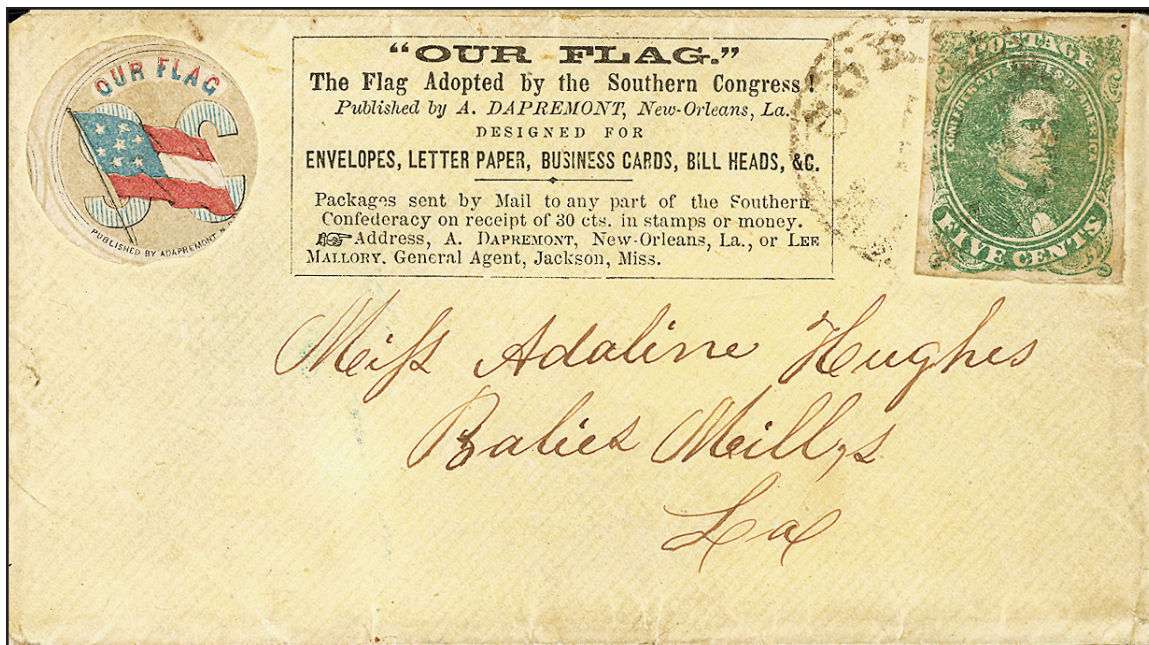 OUR FLAG
SC
PUBLISHED BY ADAPREMONT N.
"OUR FLAG."
The Flag Adopted by the Southern Congress!
Published by A. DAPREMONT, New-Orleans, La.
DESIGNED FOR
ENVELOPES, LETTER PAPER, BUSINESS CARDS, BILL HEADS, &C.
Packages sent by Mail to any part of the Southern
Confederacy on receipt of 30 cts. in stamps or money.
☞Address, A. DAPREMONT, New-Orleans, La., or LEE
MALLORY, General Agent, Jackson, Miss.
POSTAGE
CONFEDERATE STATES OF AMERICA
FIVE CENTS
Miſs Adaline Hughes
Balies Mill,s
La